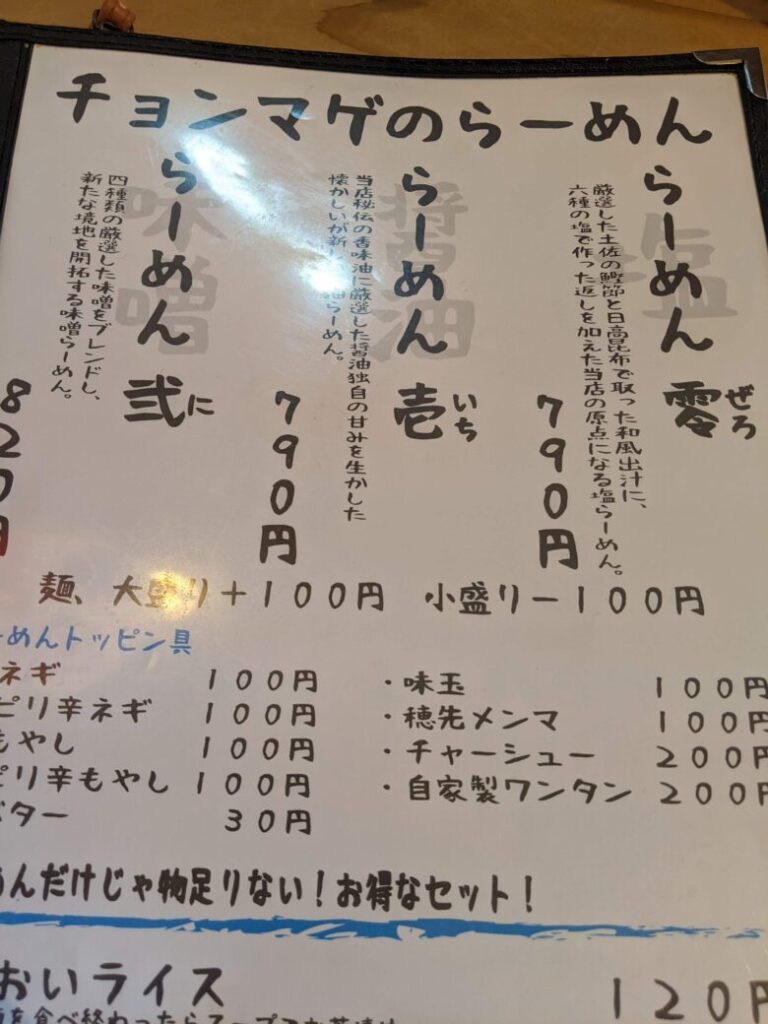 チョンマゲのらーめん
塩
らーめん 零
ぜろ
厳選した土佐の鰹節と日高昆布で取った和風出汁に、
六種の塩で作った返しを加えた当店の原点になる塩らーめん。
790円
醤油
らーめん 壱
いち
当店秘伝の香味油に厳選した醤油独自の甘みを生かした
懐かしいが新し 油らーめん。
790円
味噌
らーめん 弐
に
四種類の厳選した味噌をブレンドし、
新たな境地を開拓する味噌らーめん。
820円
麺、大盛り+100円 小盛りー100円
ーめんトッピン具
ネギ 100円
ピリ辛ネギ 100円
もやし 100円
ピリ辛もやし 100円
バター 30円
・味玉 100円
・穂先メンマ 100円
・チャーシュー 200円
・自家製ワンタン 200円
んだけじゃ物足りない!お得なセット!
おいライス 120円
を食べ終わったらスープ